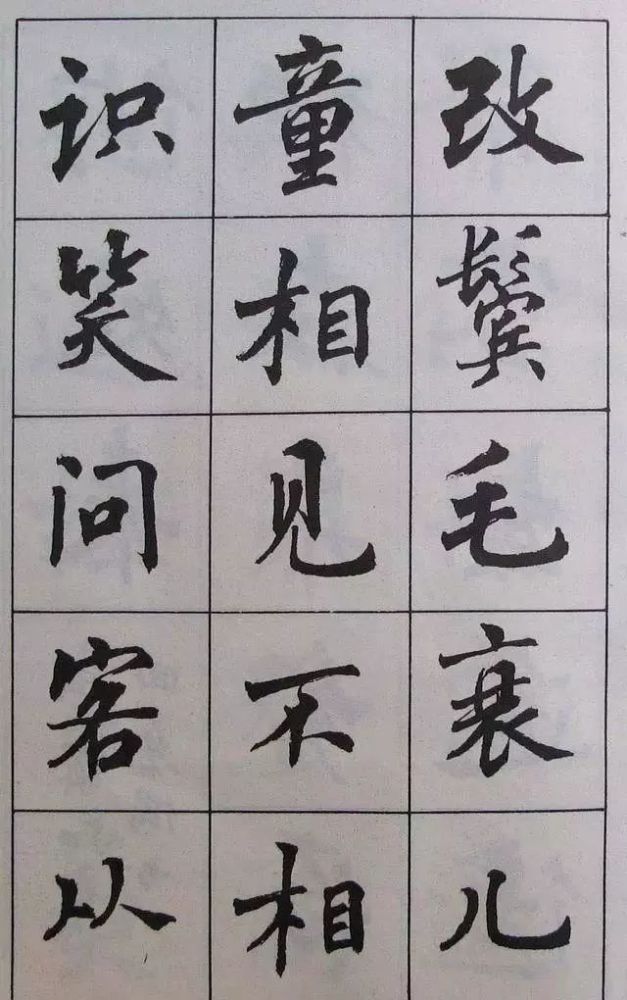 改鬓毛衰儿
童相见不相
识笑问客从